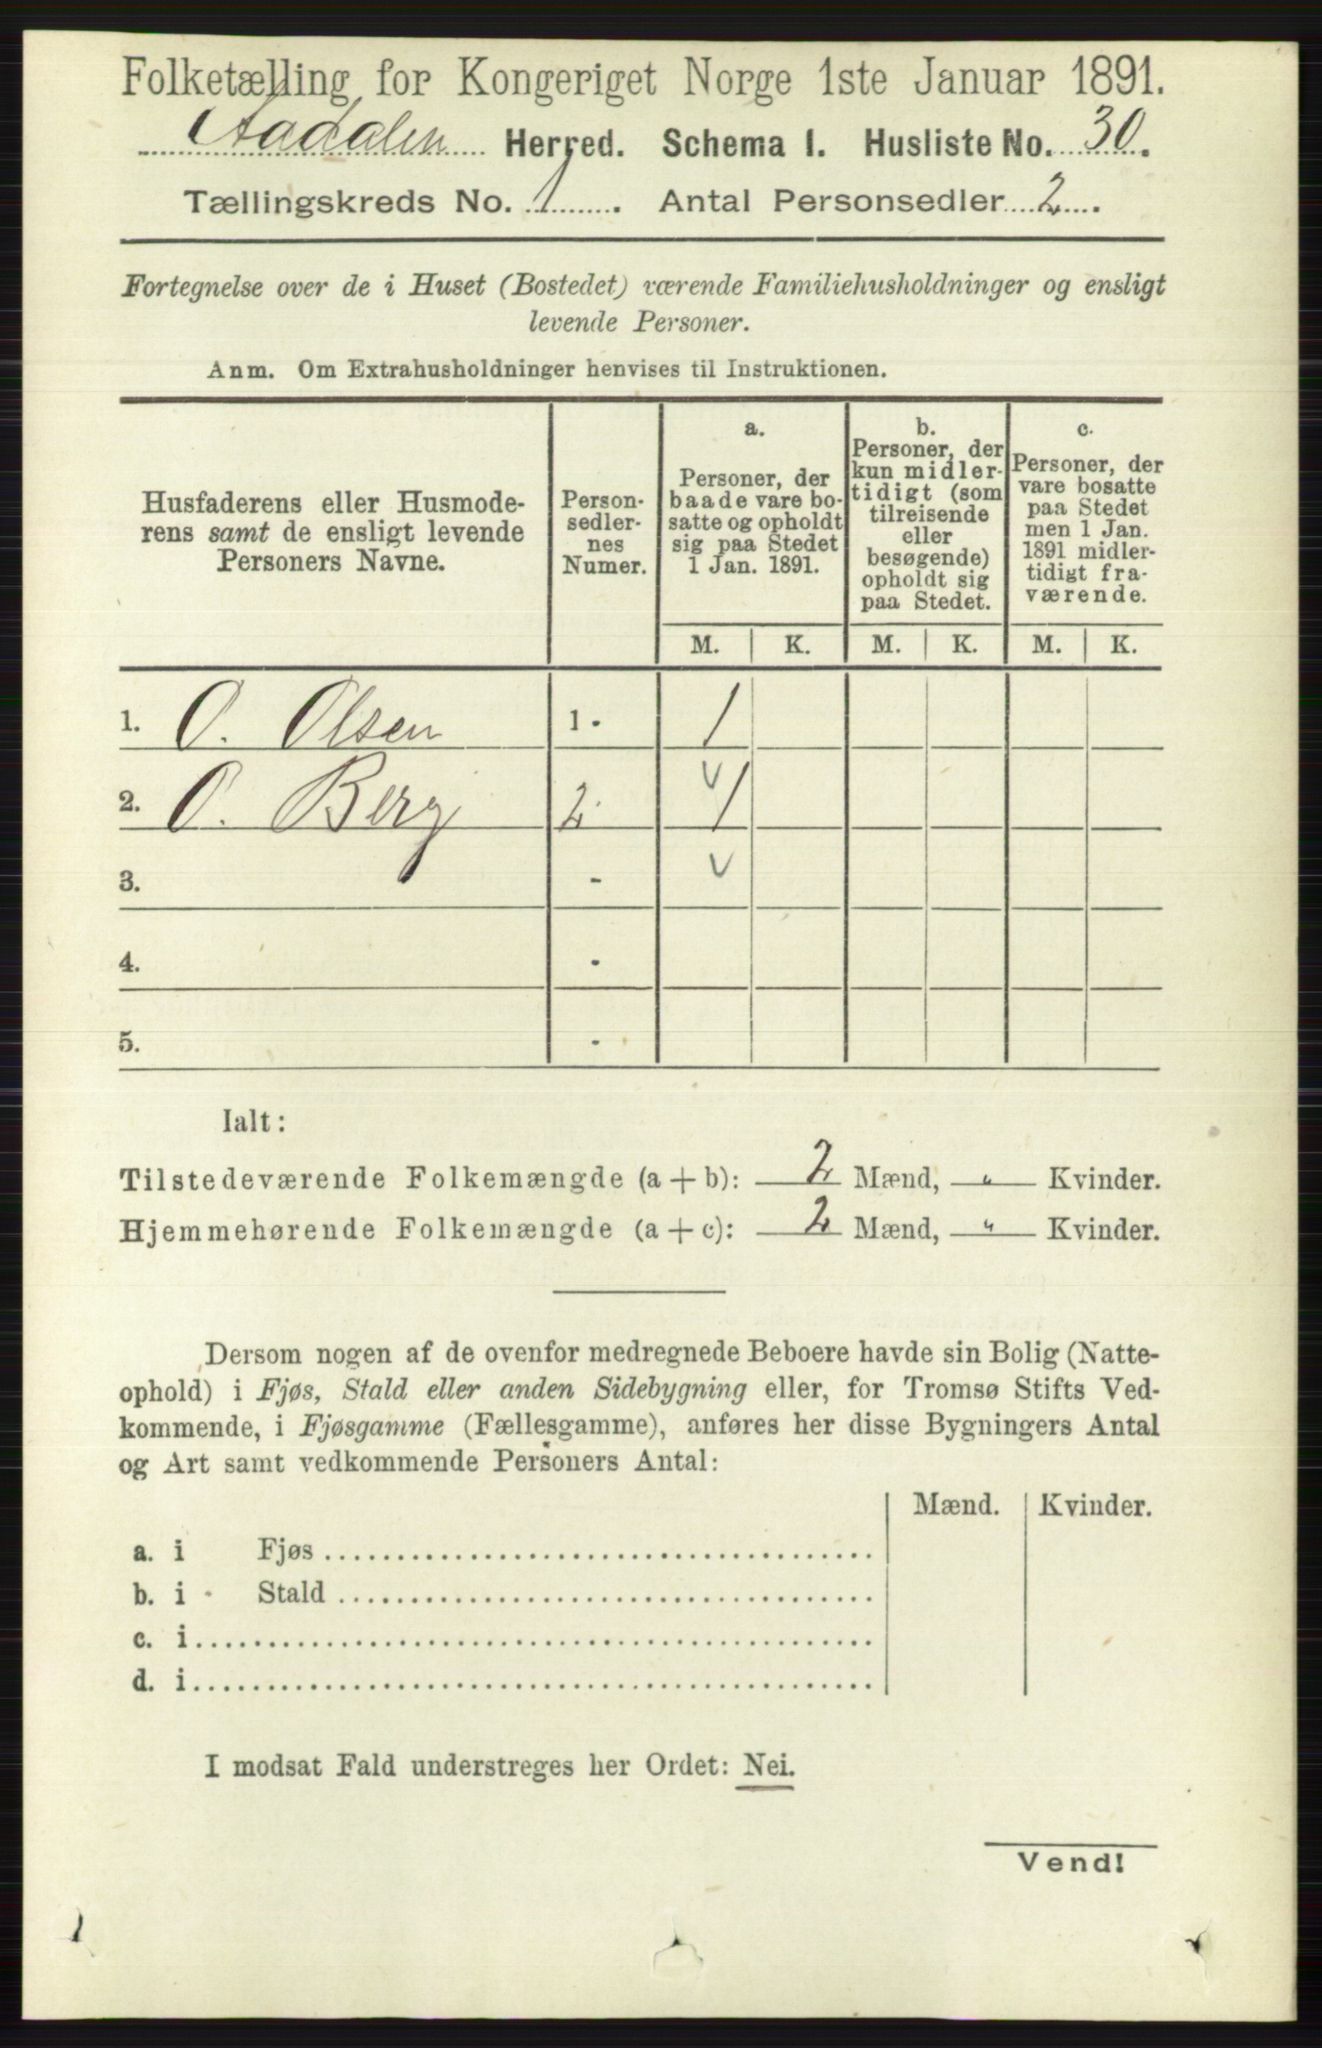 Folketælling for Kongeriget Norge 1ste Januar 1891.
Aadalen Herred. Schema I. Husliste No. 30.
Tællingskreds No. 1. Antal Personsedler 2.
Fortegnelse over de i Huset (Bostedet) værende Familiehusholdninger og ensligt
levende Personer.
Anm. Om Extrahusholdninger henvises til Instruktionen.
Husfaderens eller Husmode-
rens samt de ensligt levende
Personers Navne.
Person-
sedler-
nes
Numer.
a.
Personer, der
baade vare bo-
satte og opholdt
sig paa Stedet
1 Jan. 1891.
b.
Personer, der
kun midler-
tidigt (som
tilreisende
eller
besøgende)
opholdt sig
paa Stedet.
c.
Personer, der
vare bosatte
paa Stedet
men 1 Jan.
1891 midler-
tidigt fra-
værende.
M. K. M. K. M. K.
1. O. Olsen 1 - 1
2. O. Berg 2 - 1
3. -
4. -
5. -
Ialt:
Tilstedeværende Folkemængde (a + b): 2 Mænd, " Kvinder.
Hjemmehørende Folkemængde (a + c): 2 Mænd, " Kvinder.
Dersom nogen af de ovenfor medregnede Beboere havde sin Bolig (Natte-
ophold) i Fjøs, Stald eller anden Sidebygning eller, for Tromsø Stifts Ved-
kommende, i Fjøsgamme (Fællesgamme), anføres her disse Bygningers Antal
og Art samt vedkommende Personers Antal:
Mænd. Kvinder.
a. i Fjøs
b. i Stald
c. i
d. i
I modsat Fald understreges her Ordet: Nei.
Vend!